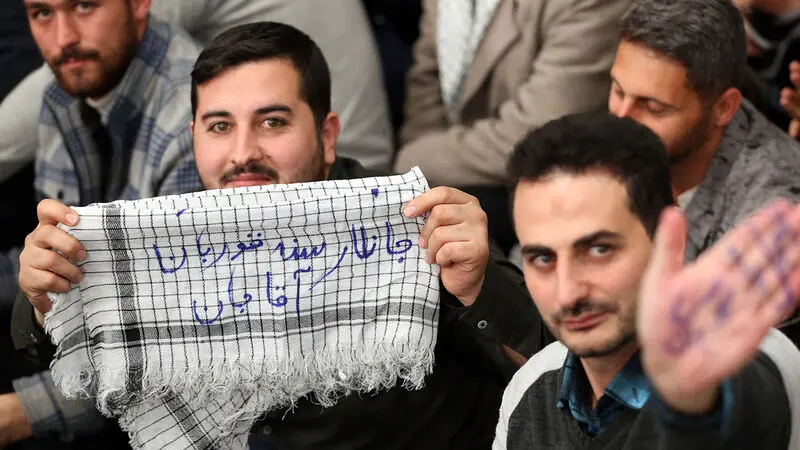 جانلار سنه قوربان
آقا جان